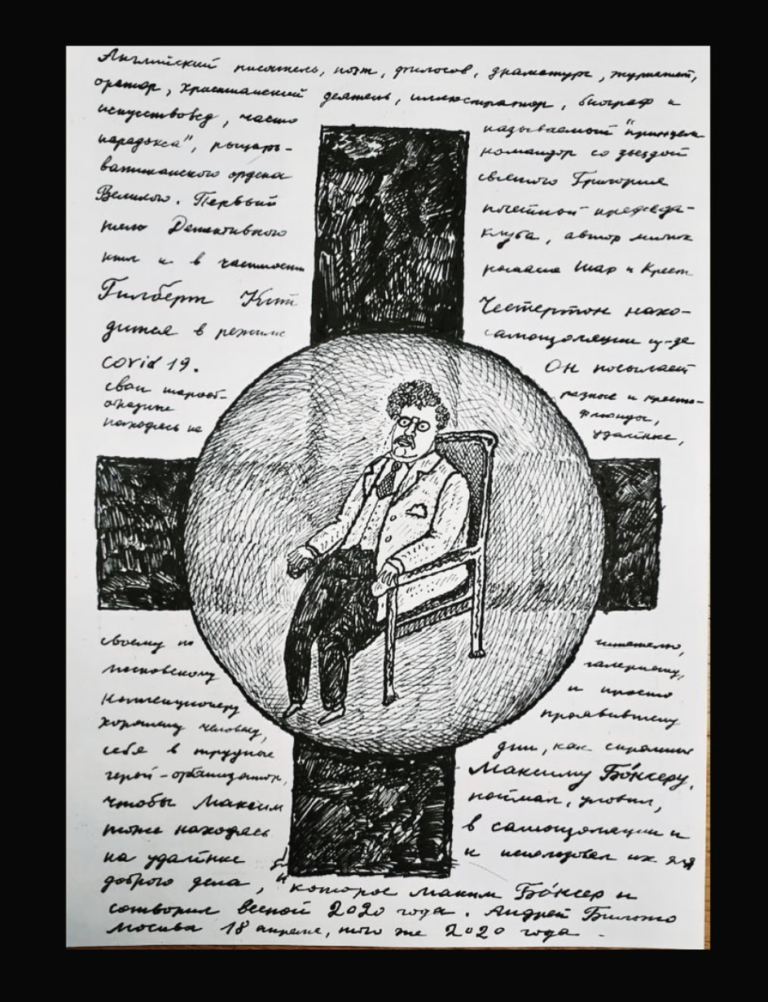 Английский писатель, поэт, философ, драматург, журналист,
оратор, христианский деятель, иллюстратор, биограф и
искусствовед, часто называемый "принцем
парадокса", рыцарь-командор со звездой
ватиканского ордена святого Григория
Великого. Первый почётный председа-
тель Детективного клуба, автор многих
книг и в частности романа Шар и Крест
Гилберт Кит Честертон нахо-
дится в режиме самоизоляции из-за
covid 19. Он посылает
свои шарооб- разные и кресто-
образные флюиды,
находясь на удалёнке,
своему по читателю,
московскому галеристу,
коллекционеру и просто
хорошему человеку, проявившему
себя в трудные дни, как
герой-организатор, Максиму Бо́ксеру,
чтобы Максим поймал, уловил,
тоже находясь в самоизоляции и
на удалёнке и использовал их для
доброго дела, которое Максим Бо́ксер и
сотворил весной 2020 года. Андрей Бильжо
Москва 18 апреля, того же 2020 года.